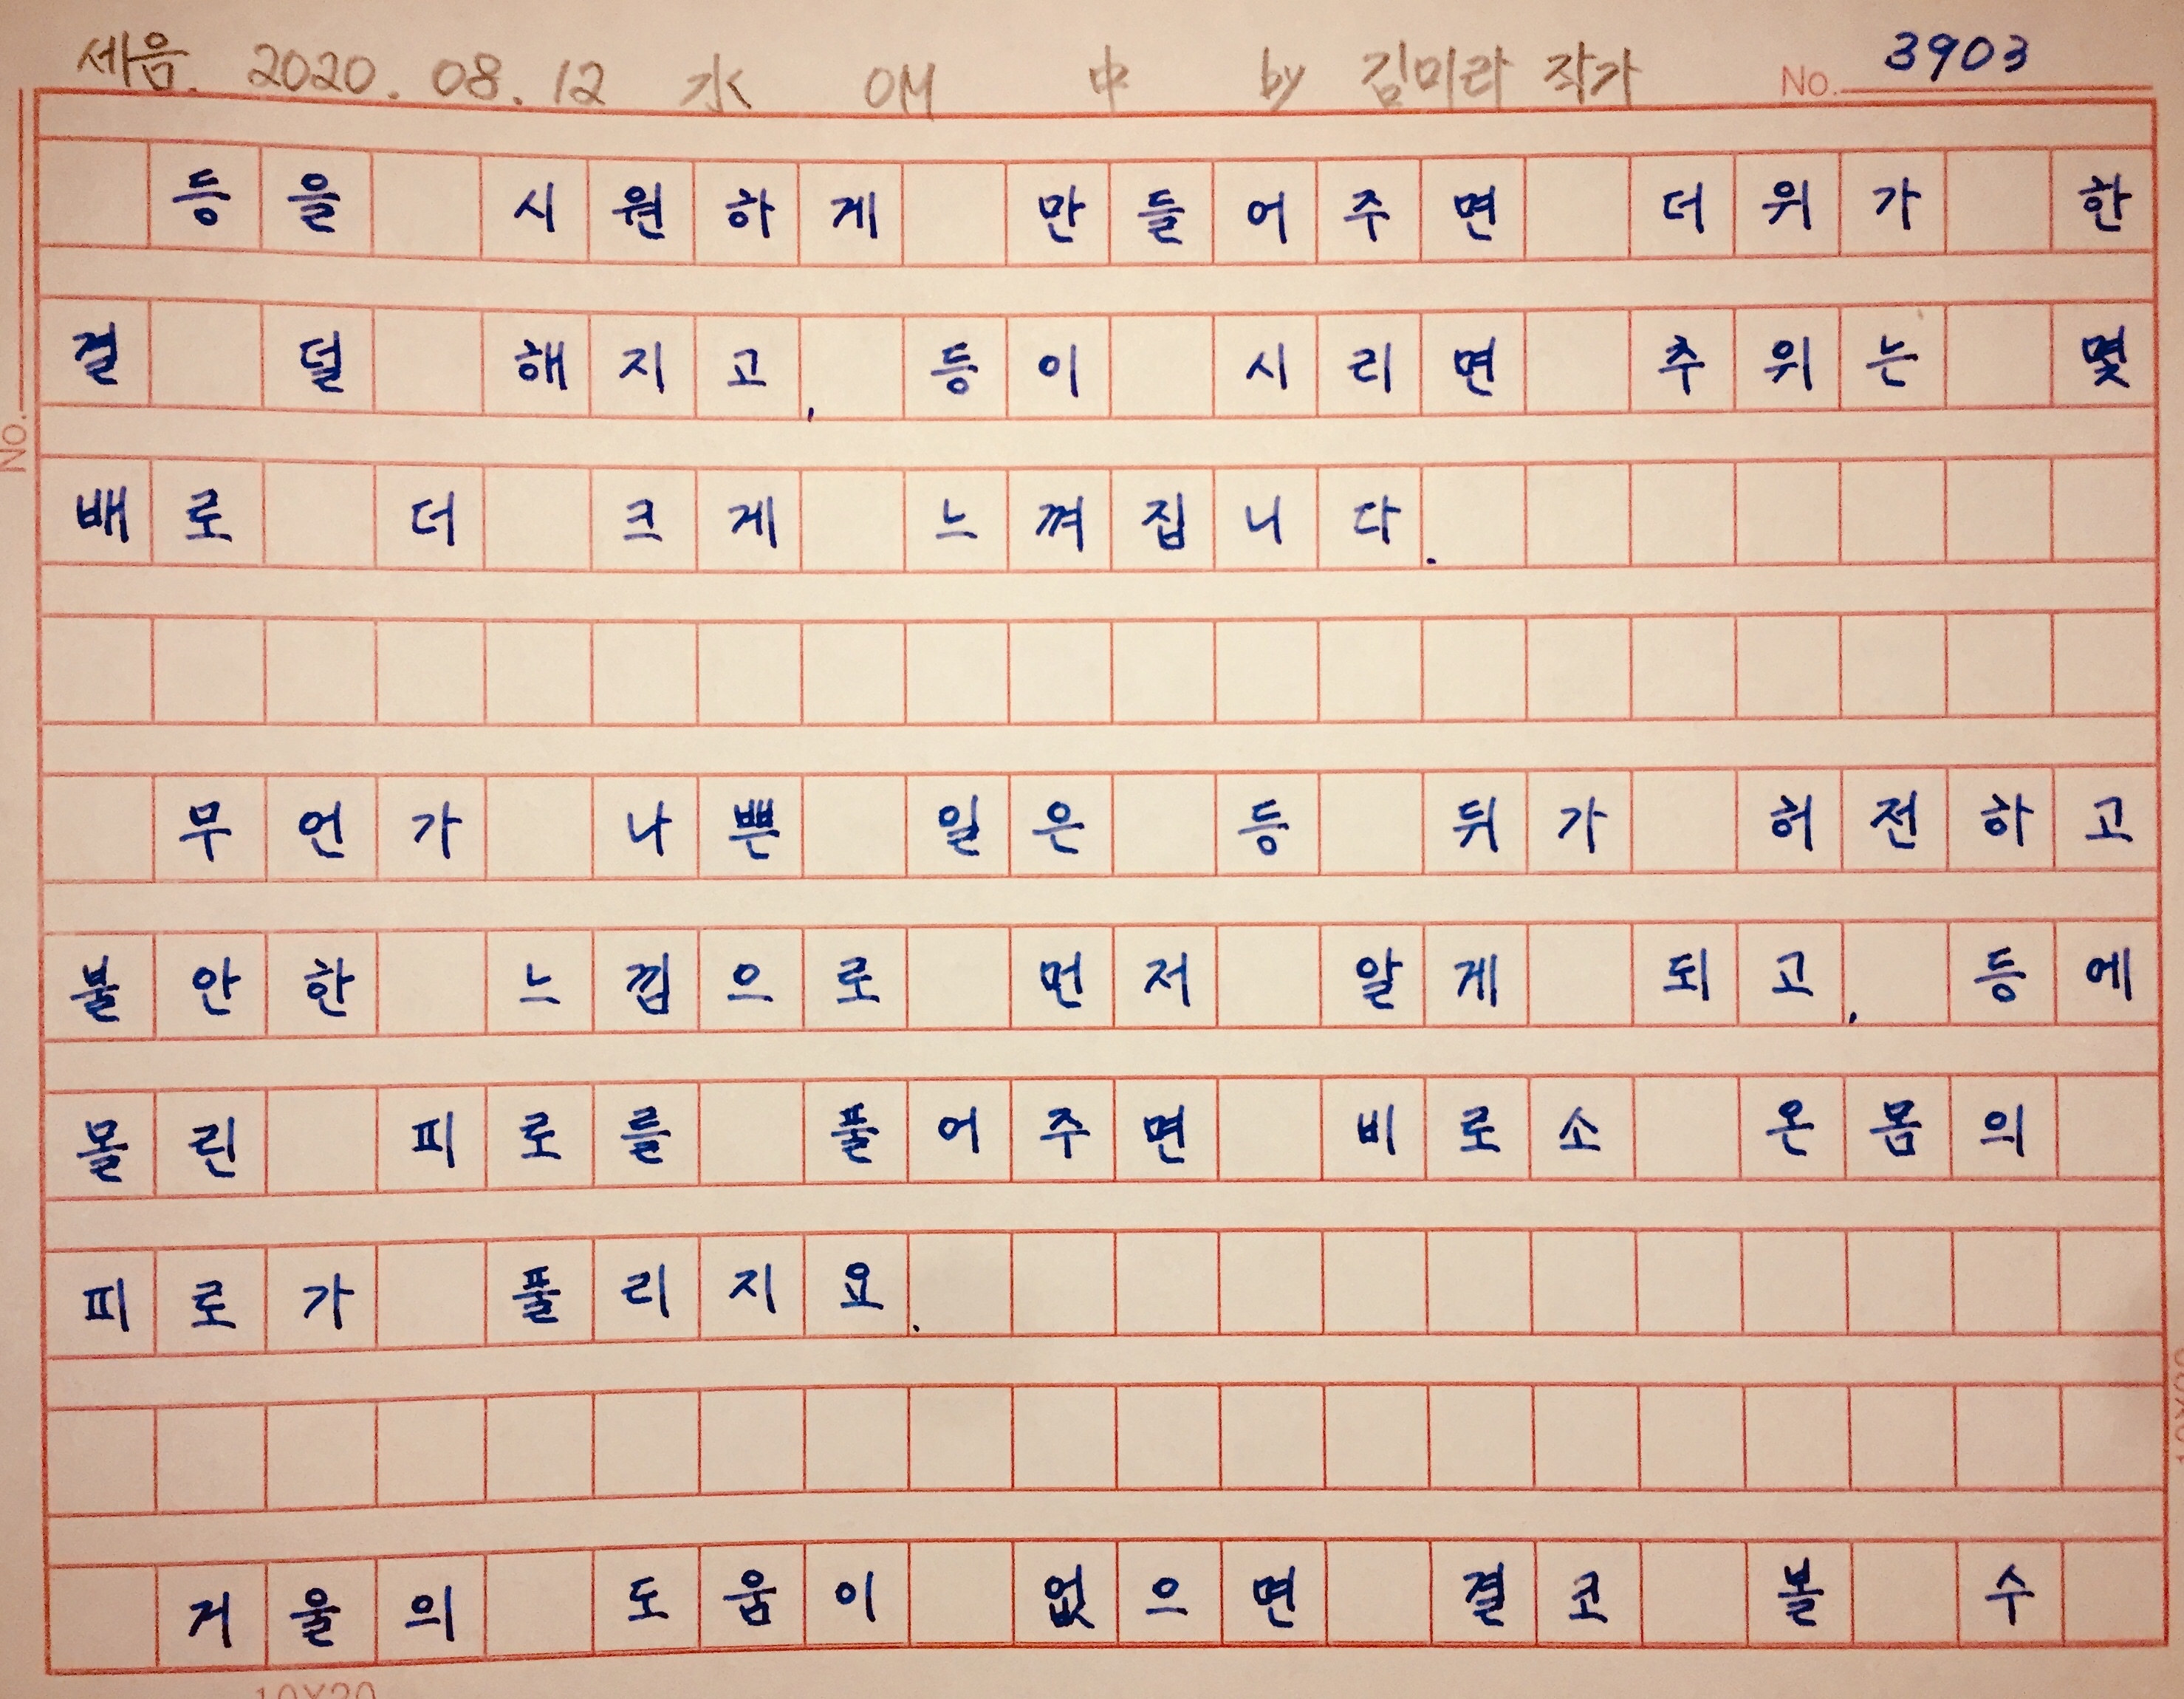 세음. 2020. 08. 12 水 OM 中 by 김미라 작가 No. 3903
등을 시원하게 만들어주면 더위가 한
결 덜 해지고, 등이 시리면 추위는 몇
배로 더 크게 느껴집니다.
무언가 나쁜 일은 등 뒤가 허전하고
불안한 느낌으로 먼저 알게 되고, 등에
몰린 피로를 풀어주면 비로소 온몸의
피로가 풀리지요.
거울의 도움이 없으면 결코 볼 수
No.
10X20